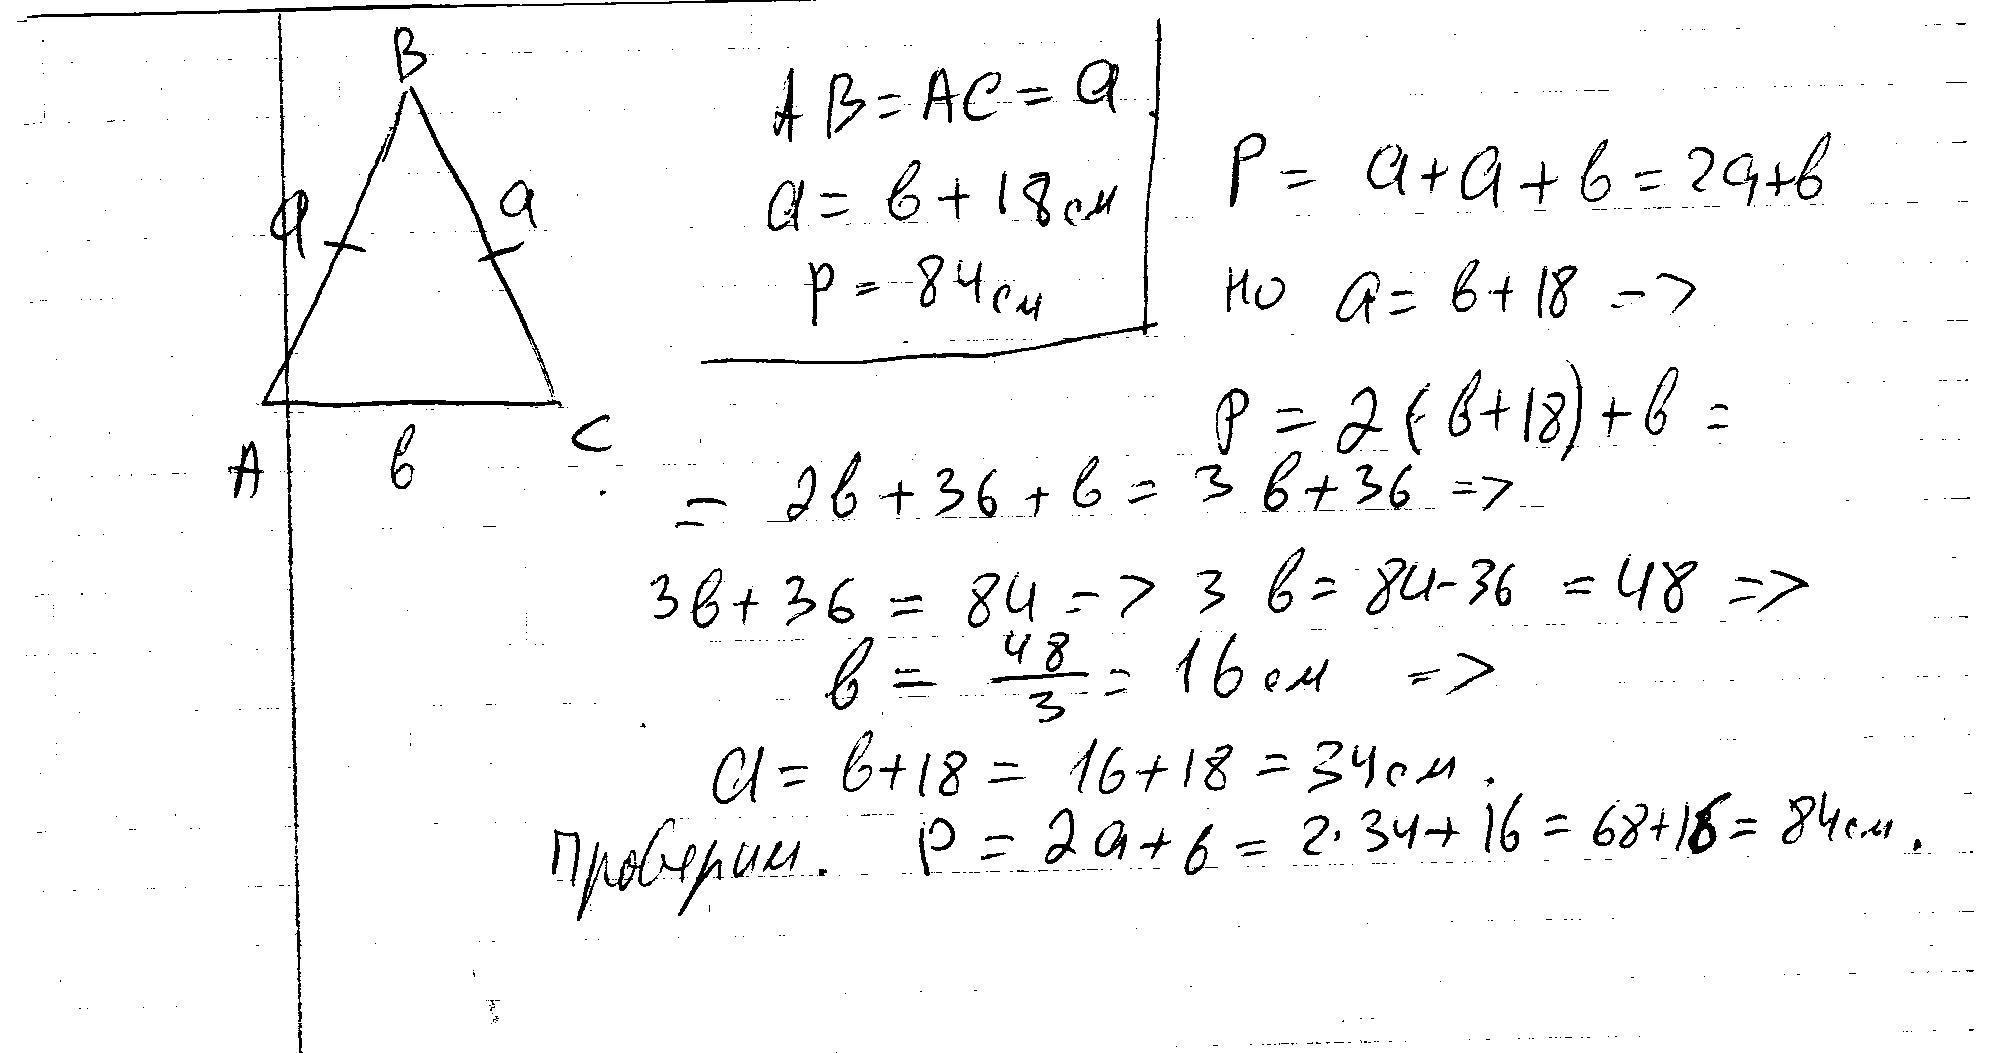 B
a
a
A
в
C
AB = AC = a
a = в + 18 см
P = 84 см
P = a + a + в = 2a + в
но a = в + 18 =>
P = 2 (в + 18) + в =
= 2в + 36 + в = 3 в + 36 =>
3в + 36 = 84 => 3 в = 84 - 36 = 48 =>
в = 48/3 = 16 см =>
a = в + 18 = 16 + 18 = 34 см.
Проверим. P = 2a + в = 2·34 + 16 = 68 + 16 = 84 см.